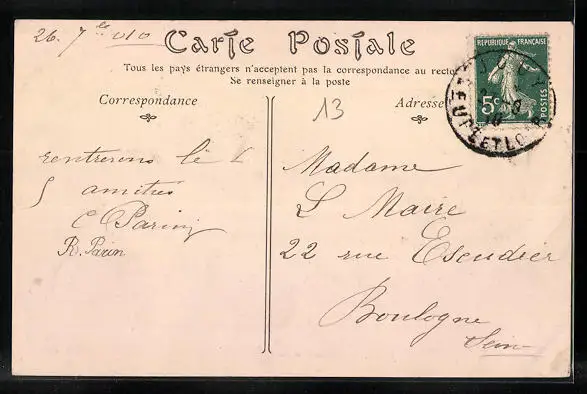 26. 7bre 010
Carte Postale
Tous les pays étrangers n'acceptent pas la correspondance au recto
Se renseigner à la poste
Correspondance
13
Adresse
RÉPUBLIQUE FRANÇAISE
5c
POSTES
JOUY
EURE ET LOIR
rentrerons le
amitiés
C Parin
R. Parin
Madame
L Maire
22 rue Escudier
Boulogne
Seine